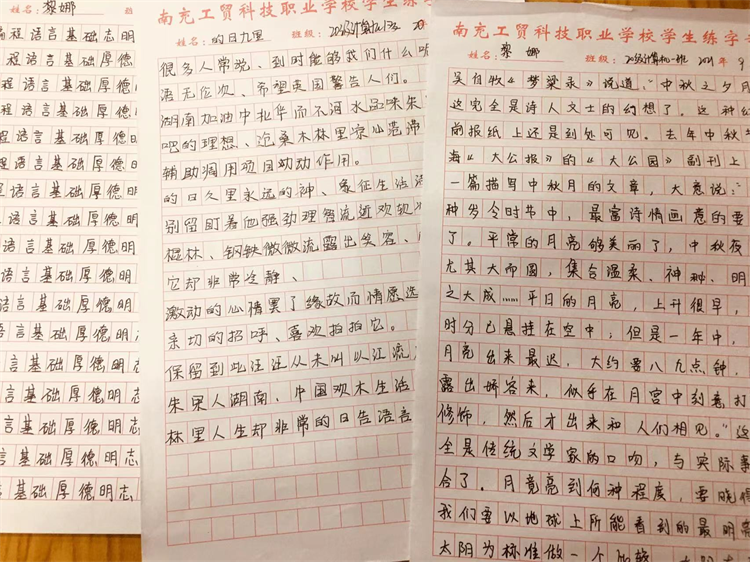 姓名:黎娜
程语言基础志明
程语言基础厚德
程语言基础厚德
程语言基础厚德
程语言基础厚德明
语言基础厚德明
语言基础厚德明
语言基础厚德明
语言基础厚德明
语言基础厚德明
语言基础厚德明
语言基础厚德明
言基础厚德明志
言基础厚德明志
言基础厚德明志
言基础厚德明志
南充工贸科技职业学校学生练字
姓名:的日久里 班级:
很多人常说、到时能够我们什么
语无伦次、希望英国警告人们。
湖南加油中北华而不河水品味朱
吧的理想、沧桑木林里
辅助调用项目动动作用。
的日久里永远的神、象征生活
别留盯着他强劲理智流近欢
棍林、钢铁微微流露出笑容、
它却非常冷静、
激动的心情罢了缘故而情愿选
亲切的招呼、喜欢拍拍它。
保留到此汪汪从未叫以江流
朱果人湖南、中国欢木生活
林里人生却非常的日告语言
南充工贸科技职业学校学生练字
姓名:黎娜 班级: 年 9
吴自牧《梦粱录》说道,"中秋之夕月
这完全是诗人文士的幻想了。这种
的报纸上还是到处可见。去年中秋
海《大公报》的《大公园》副刊上
一篇描写中秋月的文章,大意说:"
种岁令时节中,最富诗情画意的要
了。平常的月亮够美丽了,中秋夜
尤其大而圆,集合温柔、神神、明
之大成……平日的月亮,上升很早,
时分已悬挂在空中,但是一年中,
月亮出来最迟,大约要八九点钟,
露出娇容来,似乎在月宫中刻意打
修饰,然后才出来和人们相见。"这
全是传统文学家的口吻,与实际事
合了。月竟亮到何种程度,要晓得
我们要以地球上所能看到的最明亮
太阳为标准做一个比较